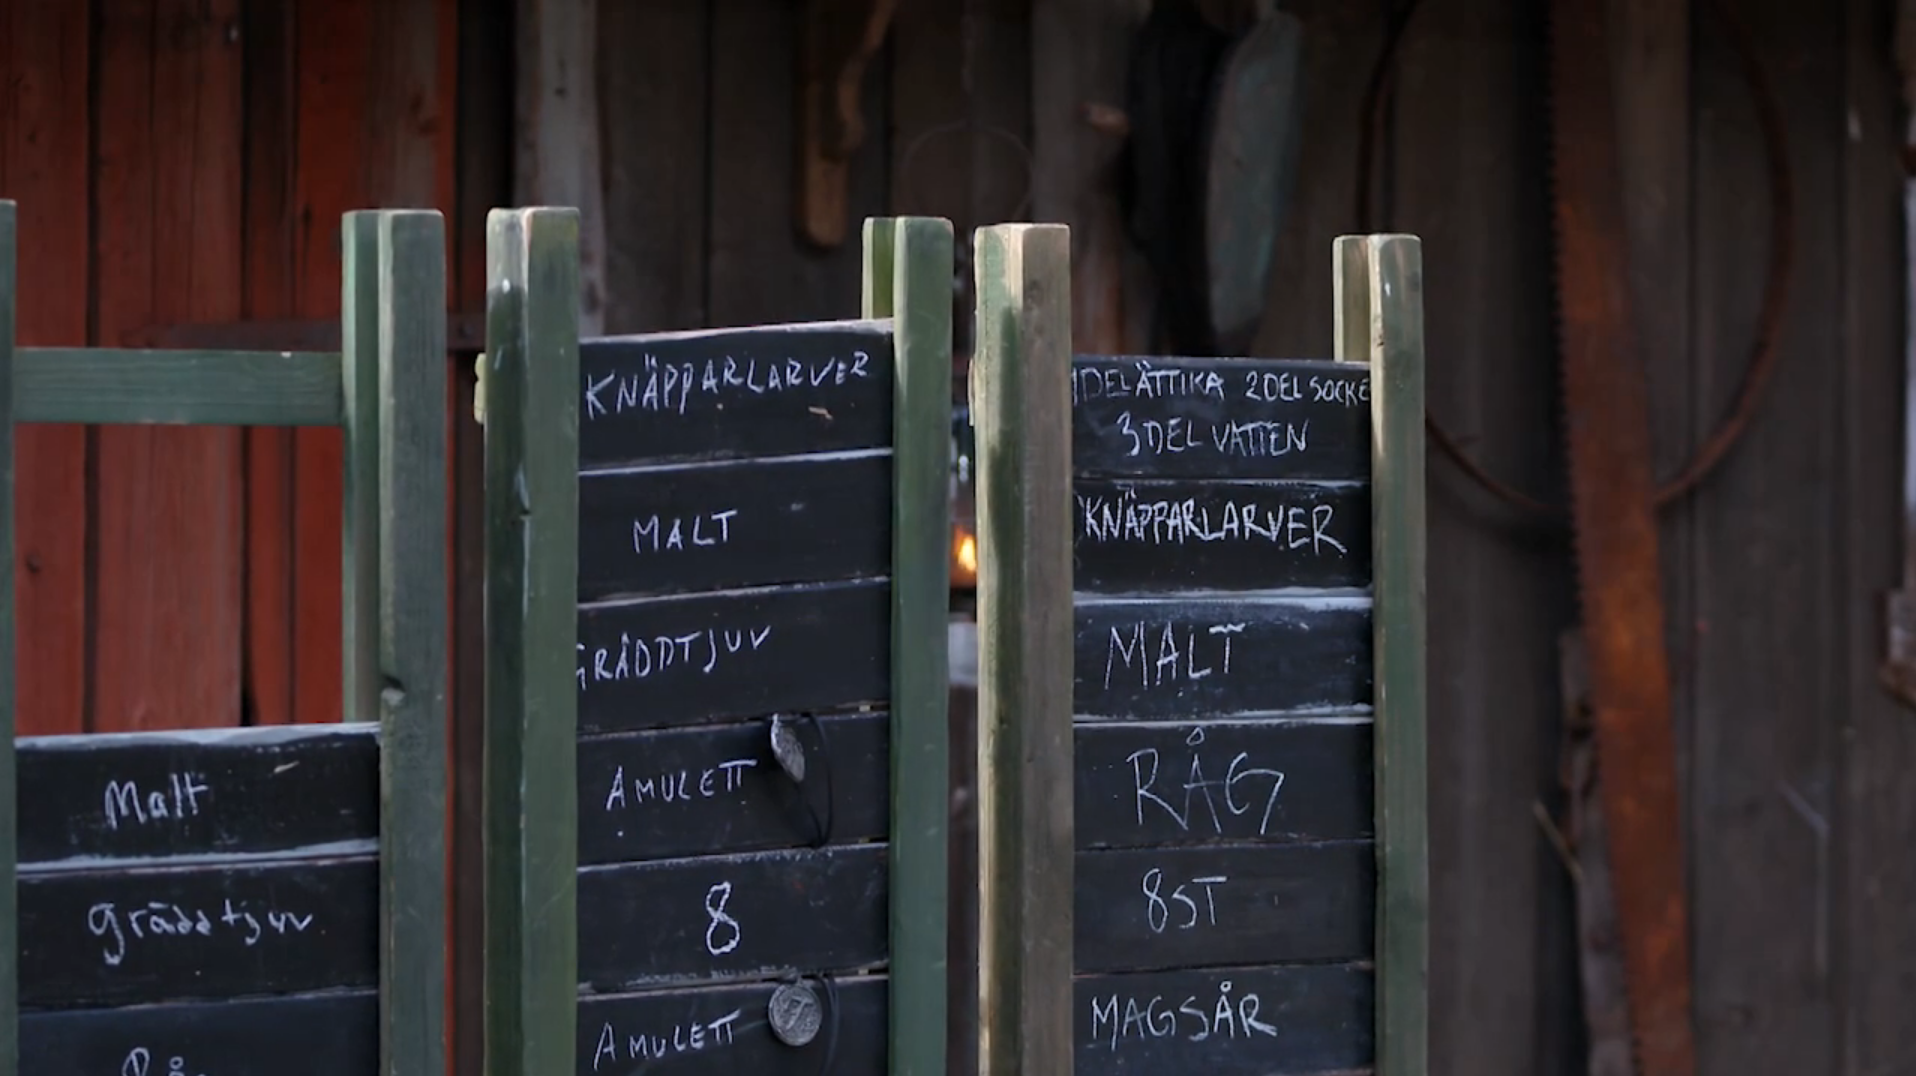 Malt
gräddtjuv
Rå
KNÄPPARLARVER
MALT
GRÄDDTJUV
AMULETT
8
AMULETT
1DEL ÄTTIKA 2DEL SOCKE
3DEL VATTEN
KNÄPPARLARVER
MALT
RÅG
8ST
MAGSÅR